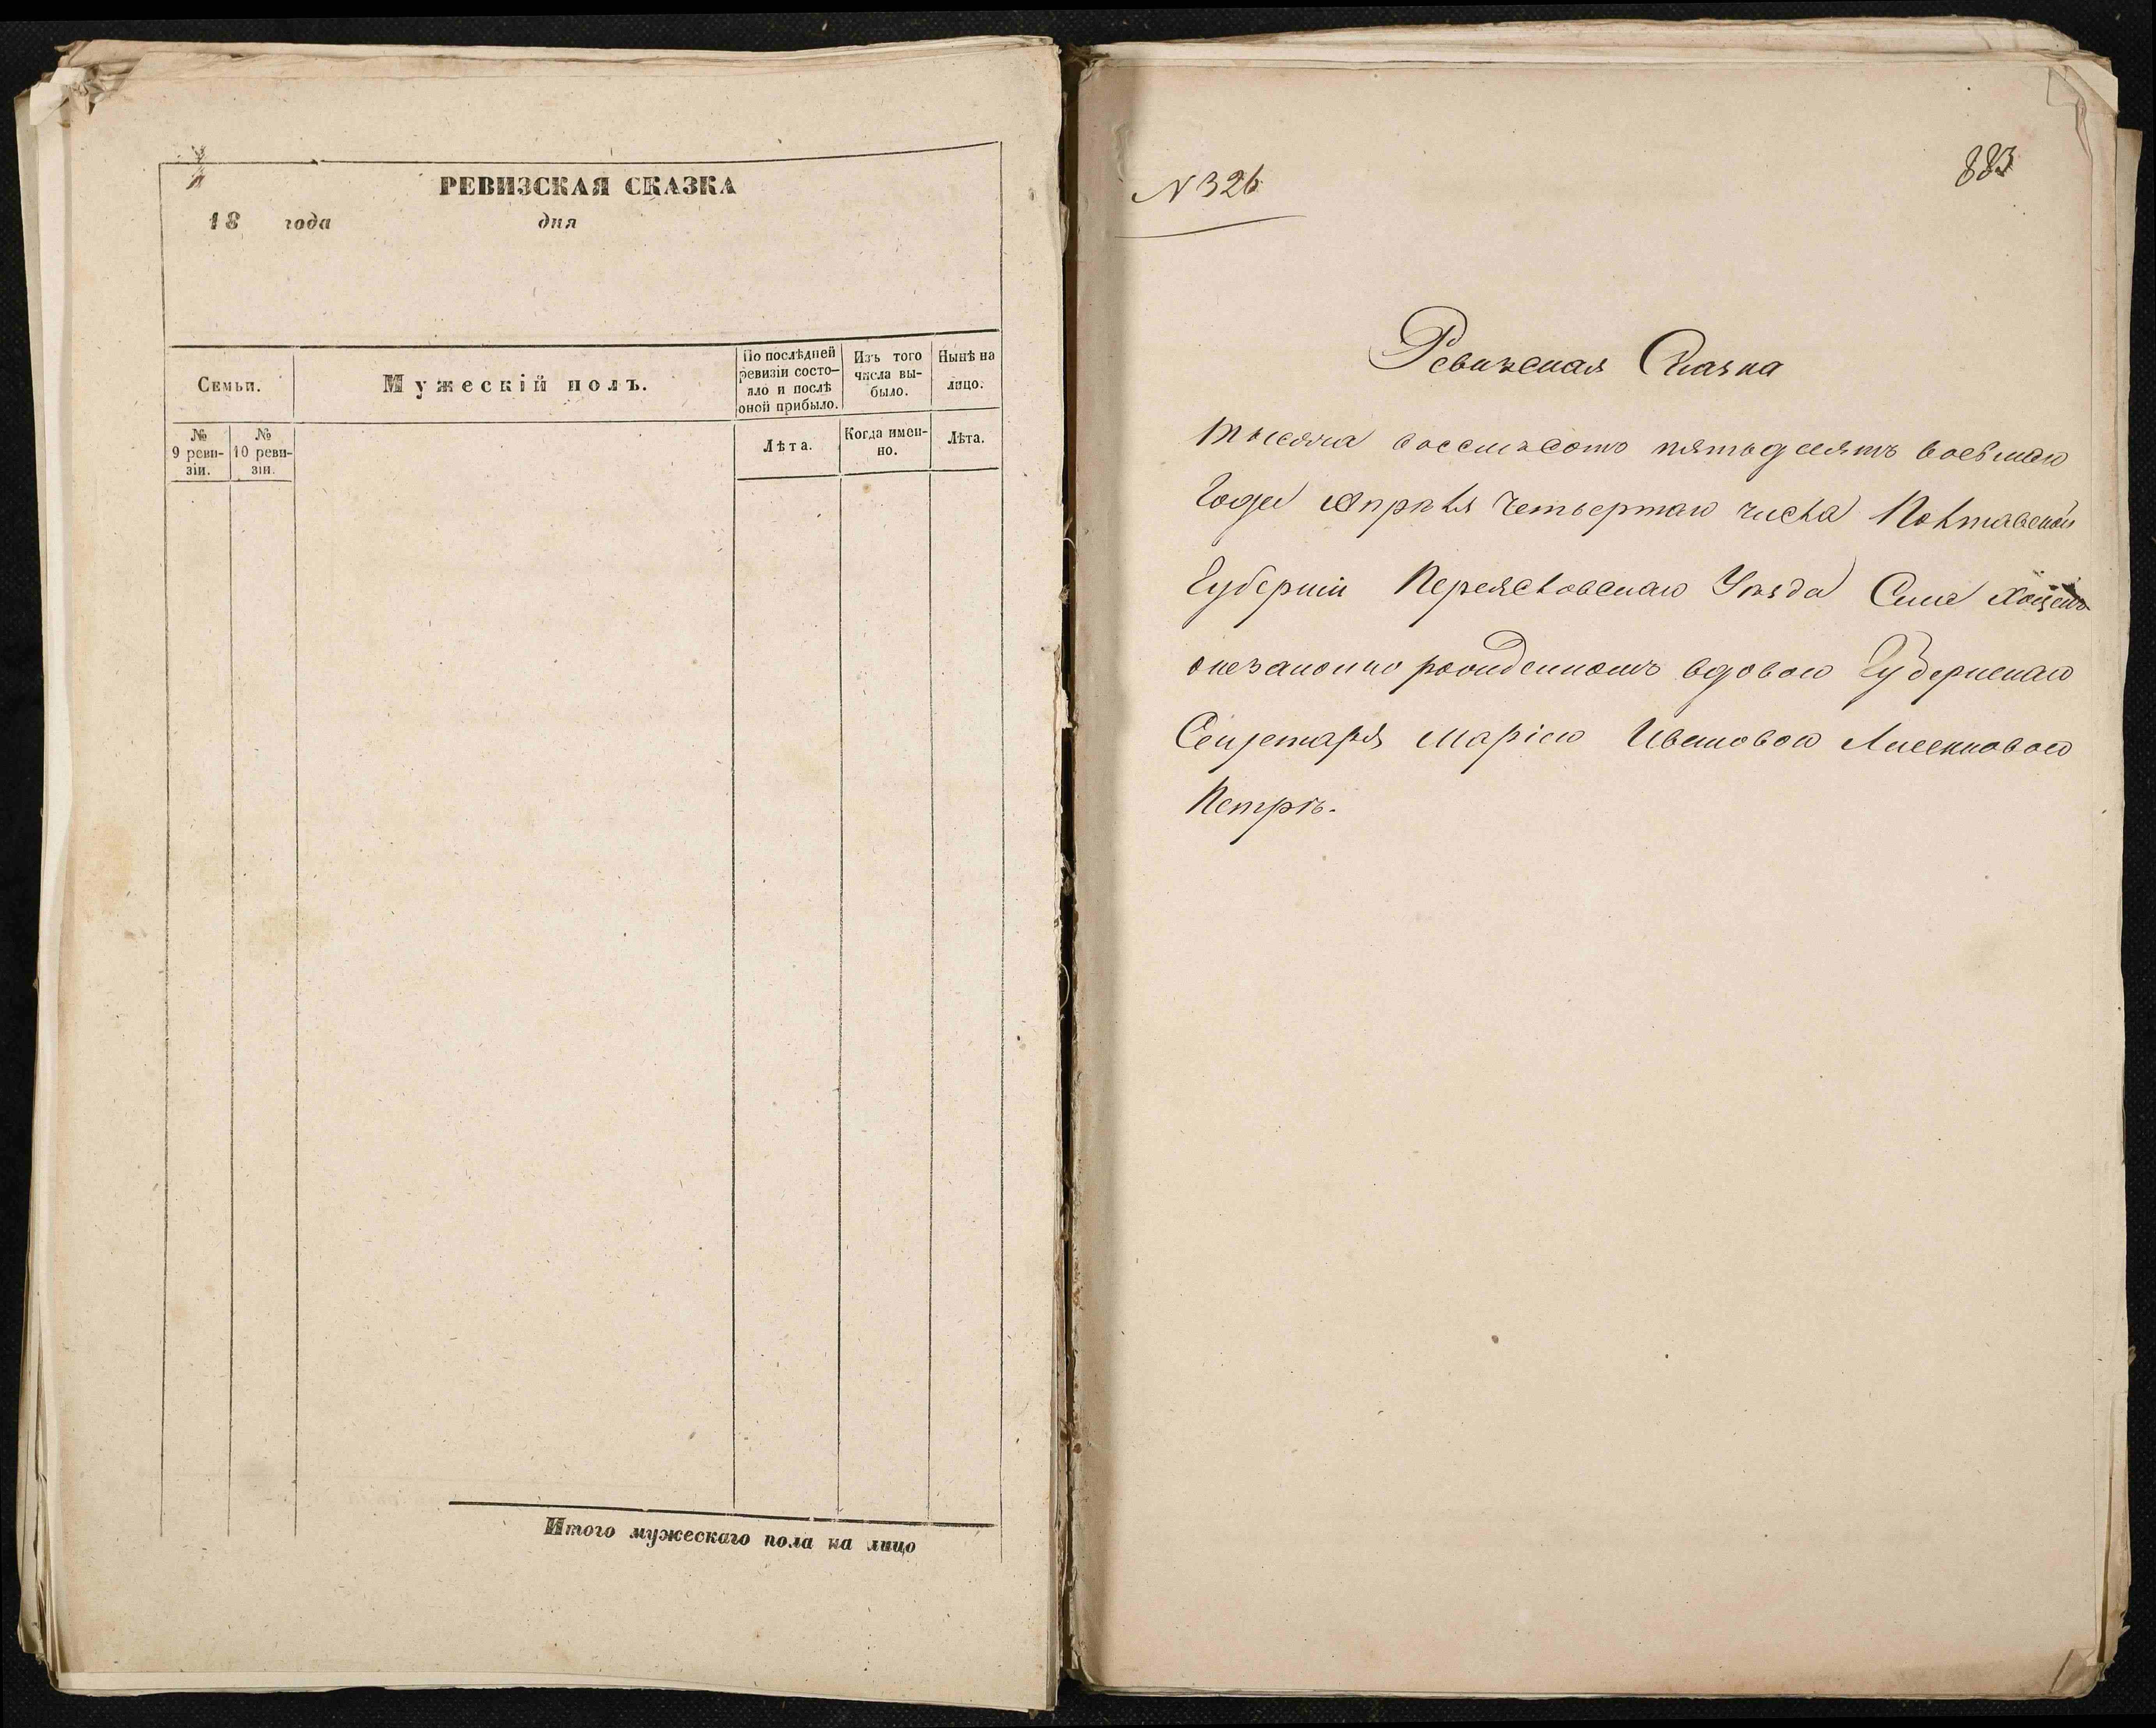 РЕВИЗСКАЯ СКАЗКА
18 года дня
Семьи.
Мужескій полъ.
По послѣдней ревизіи состояло и послѣ оной прибыло.
Изъ того числа выбыло.
Нынѣ на лицо.
№ 9 ревизіи.
№ 10 ревизіи.
Лѣта.
Когда именно.
Лѣта.
Итого мужескаго пола на лицо
N 326
883
Ревизская Сказка
Тысяча восемьсотъ пятьдесятъ восьмаго
Года Апрѣля Четвертаго числа Полтавской
Губерніи Переясловскаго Уѣзда Села
о незаконно рожденномъ вдовою Губернскаго
Секретаря Маріею Ивановою Лисенковою
Петрѣ.